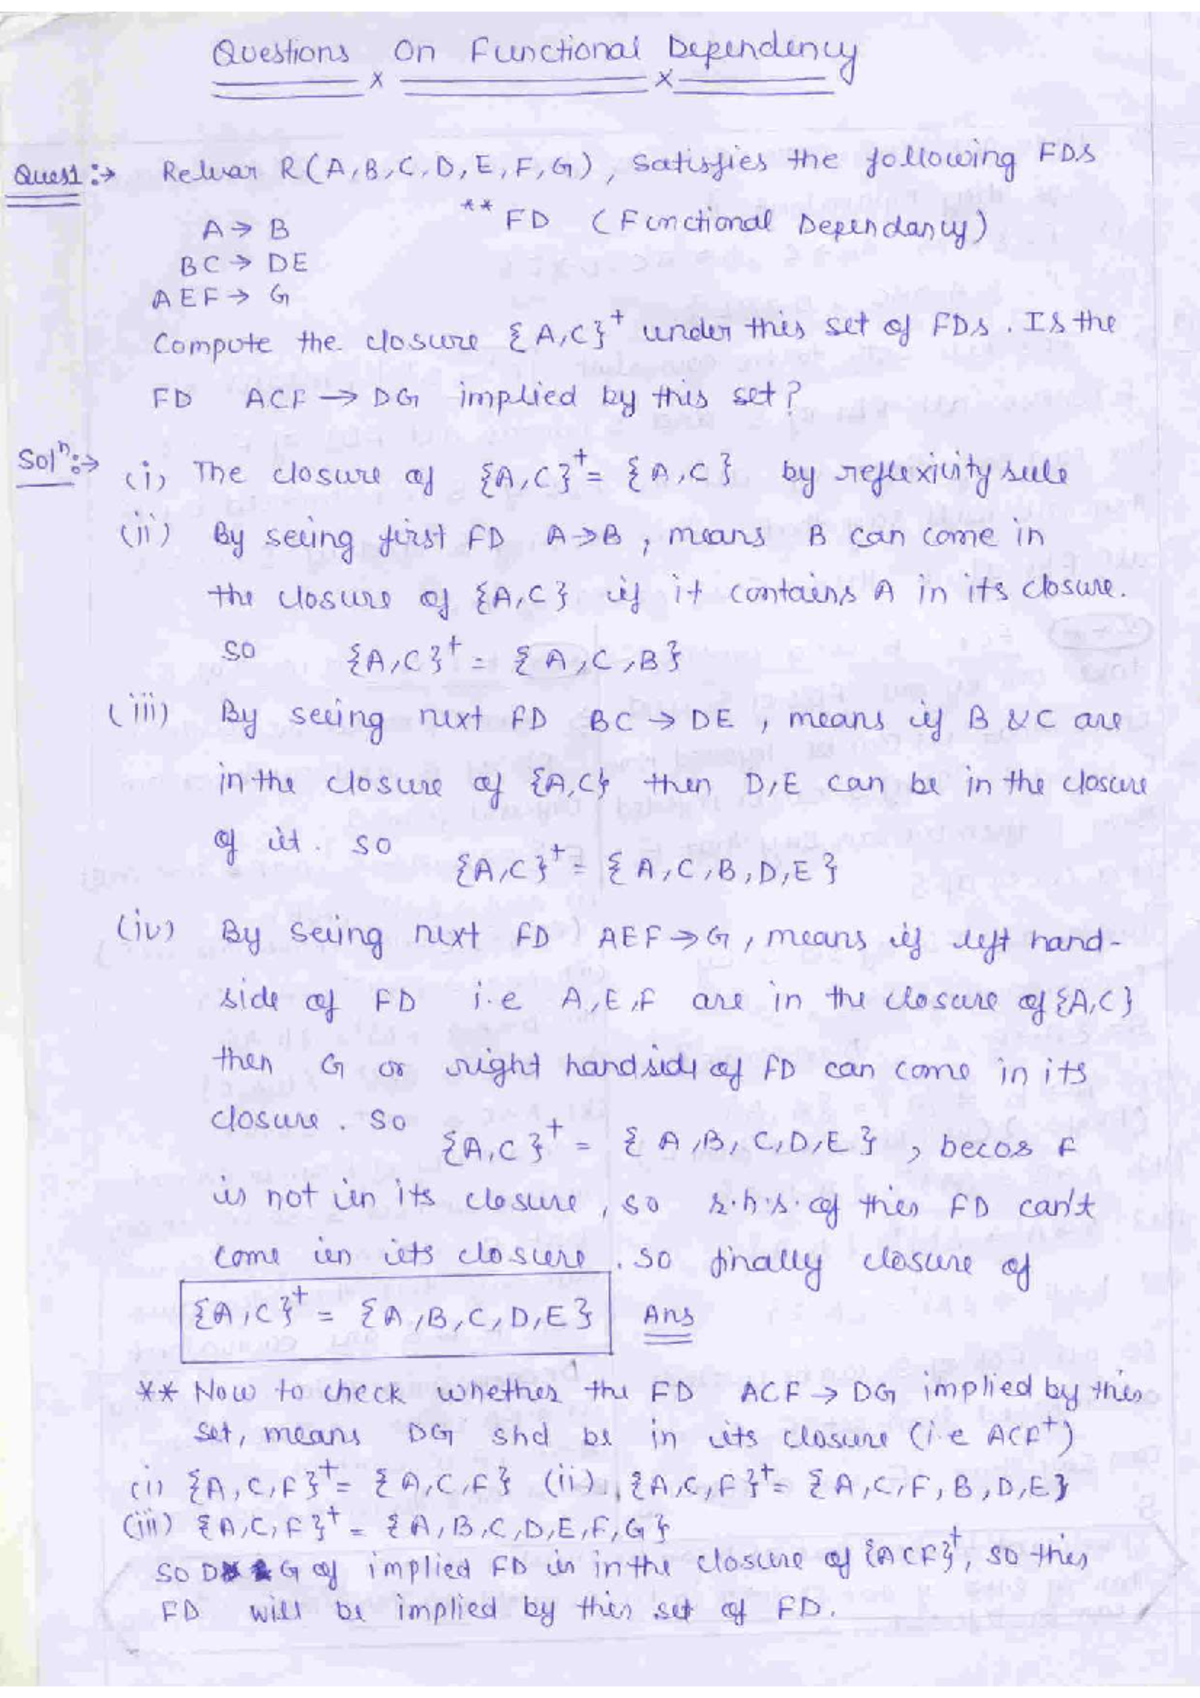 Questions On Functional Dependency
x x
Ques1 :→ Relvar R(A,B,C,D,E,F,G), Satisfies the following FDS
A → B ** FD (Functional Dependancy)
BC → DE
AEF → G
Compute the closure {A,C}⁺ under this set of FDs. Is the
FD ACF → DG implied by this set?
Solⁿ:→ (i) The closure of {A,C}⁺ = {A,C} by reflexivity rule
(ii) By seeing first FD A→B, means B can come in
the closure of {A,C} if it contains A in its closure.
so {A,C}⁺ = {A,C,B}
(iii) By seeing next FD BC → DE, means if B & C are
in the closure of {A,C} then D,E can be in the closure
of it. so
{A,C}⁺ = {A,C,B,D,E}
(iv) By seeing next FD AEF → G, means if left hand-
side of FD i.e A,E,F are in the closure of {A,C}
then G or right hand side of FD can come in its
closure. So {A,C}⁺ = {A,B,C,D,E}, becos F
is not in its closure, so r.h.s. of this FD can't
come in its closure. so finally closure of
{A,C}⁺ = {A,B,C,D,E} Ans
** Now to check whether the FD ACF → DG implied by this
set, means DG shd be in its closure (i.e ACF⁺)
(i) {A,C,F}⁺ = {A,C,F} (ii) {A,C,F}⁺ = {A,C,F,B,D,E}
(iii) {A,C,F}⁺ = {A,B,C,D,E,F,G}
SO D G of implied FD is in the closure of {ACF}⁺, so this
FD will be implied by this set of FD.